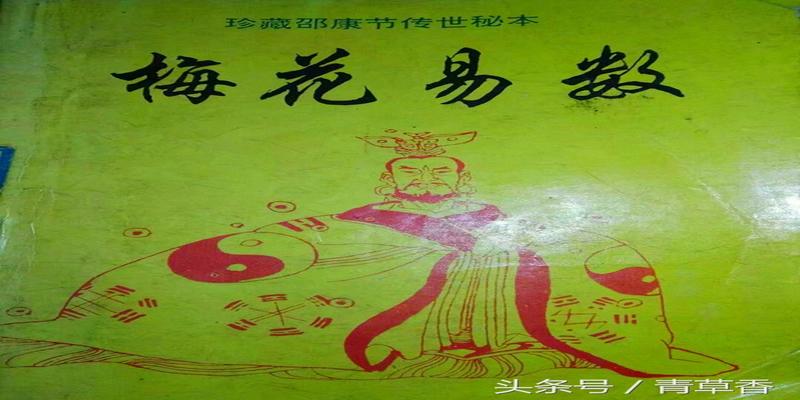 珍藏邵康节传世秘本
梅花易数
头条号 / 青草香